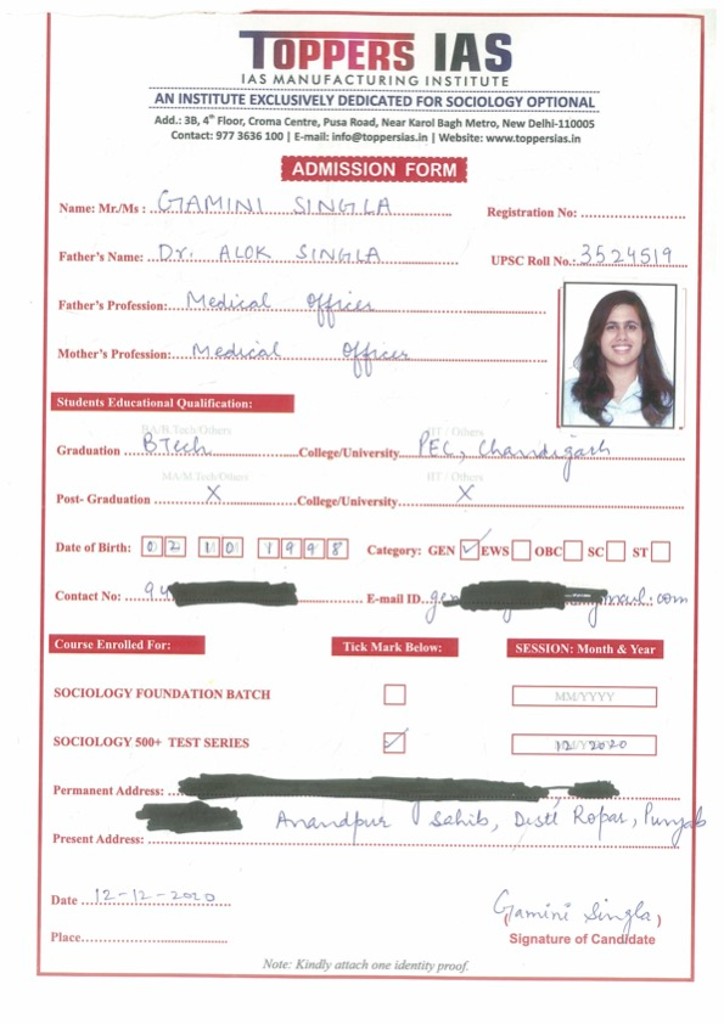 TOPPERS IAS
IAS MANUFACTURING INSTITUTE
AN INSTITUTE EXCLUSIVELY DEDICATED FOR SOCIOLOGY OPTIONAL
Add.: 3B, 4th Floor, Croma Centre, Pusa Road, Near Karol Bagh Metro, New Delhi-110005
Contact: 977 3636 100 | E-mail: info@toppersias.in | Website: www.toppersias.in
ADMISSION FORM
Name: Mr./Ms : GAMINI SINGLA Registration No:
Father's Name: Dr. ALOK SINGLA UPSC Roll No.: 3524519
Father's Profession: Medical Officer
Mother's Profession: Medical Officer
Students Educational Qualification:
BA/B.Tech/Others IIT / Others
Graduation BTech College/University PEC, Chandigarh
MA/M.Tech/Others IIT / Others
Post- Graduation X College/University X
Date of Birth: 02 10 1998 Category: GEN ✓ EWS OBC SC ST
Contact No: 94 E-mail ID ge gmail.com
Course Enrolled For: Tick Mark Below: SESSION: Month & Year
SOCIOLOGY FOUNDATION BATCH MM/YYYY
SOCIOLOGY 500+ TEST SERIES ✓ 12/2020
Permanent Address:
Anandpur Sahib, Distt Ropar, Punjab
Present Address:
Date 12-12-2020
Gamini Singla
Place Signature of Candidate
Note: Kindly attach one identity proof.